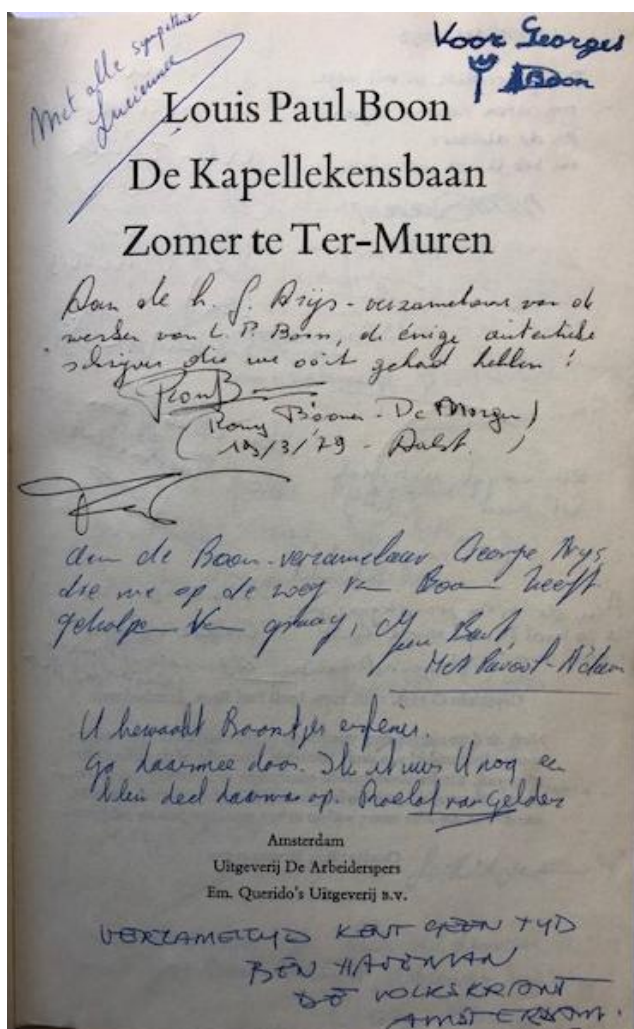 Met alle sympathie
Lucienne
Voor Georges
Boon
Louis Paul Boon
De Kapellekensbaan
Zomer te Ter-Muren
Aan de h. G. Arijs - verzamelaar van de
werken van L. P. Boon, de énige autentieke
schrijver die we ooit gehad hebben !
(Rony Boonen - De Morgen)
19/3/79 - Aalst.
Aan de Boon-verzamelaar George Arys
die me op de weg van Boon heeft
geholpen
Met
U bewaakt Boontjes erfenis.
Ga daarmee door. Ik eis U nog een
klein deel daarvan op. Roelof van Gelder
Amsterdam
Uitgeverij De Arbeiderspers
Em. Querido's Uitgeverij B.V.
VERZAMELTIJD KENT GEEN TIJD
BEN HAVEMAN
DE VOLKSKRANT
AMSTERDAM.